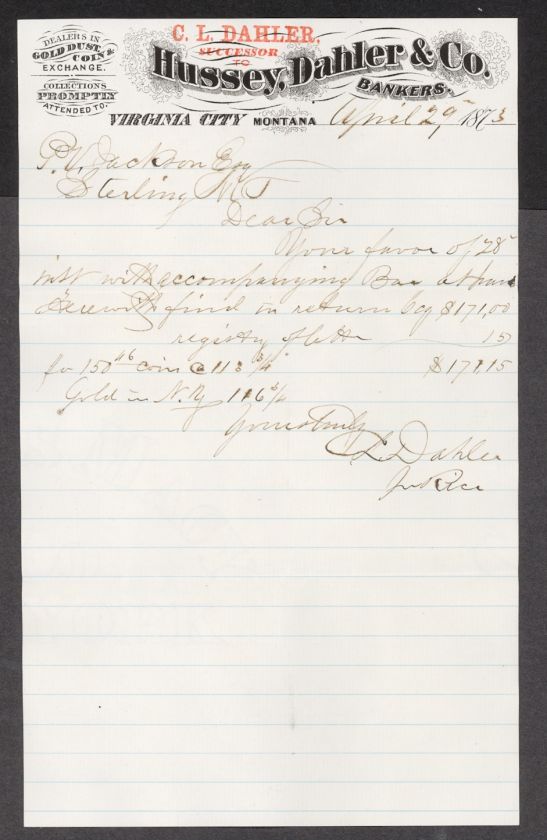 DEALERS IN
GOLD DUST,
COIN &
EXCHANGE.
COLLECTIONS
PROMPTLY
ATTENDED TO.
C. L. DAHLER,
SUCCESSOR
TO
Hussey, Dahler & Co.
BANKERS.
VIRGINIA CITY MONTANA April 29" 1873
P. V. Jackson Esq
Sterling M T
Dear Sir
Your favor of 28"
inst with accompanying Bar at hand
Herewith find in return Cy $171.00
registry of letter 15
for 150 46 coin @ 113 3/4 $171.15
Gold in N. Y. 116 3/4
Yours truly
C L Dahler